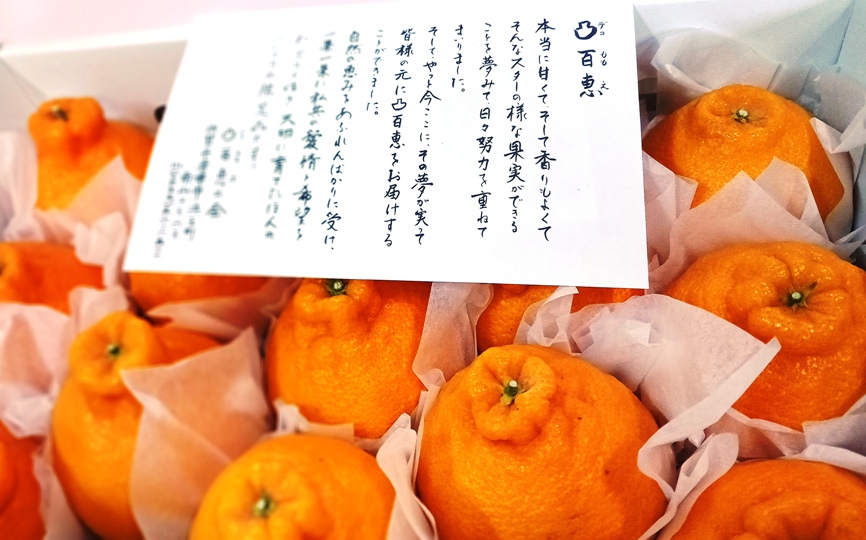 凸百恵
デコ もも え
本当に甘くて、そして香りもよくて
そんなスターの様な果実ができる
ことを夢みて、日々努力を重ねて
まいりました。
そしてやっと今ここに、その夢が実って
皆様の元に凸百恵をお届けする
ことができました。
自然の恵みをあふれんばかりに受け、
一果一果に私共の愛情と希望を
大切に育
凸百恵会